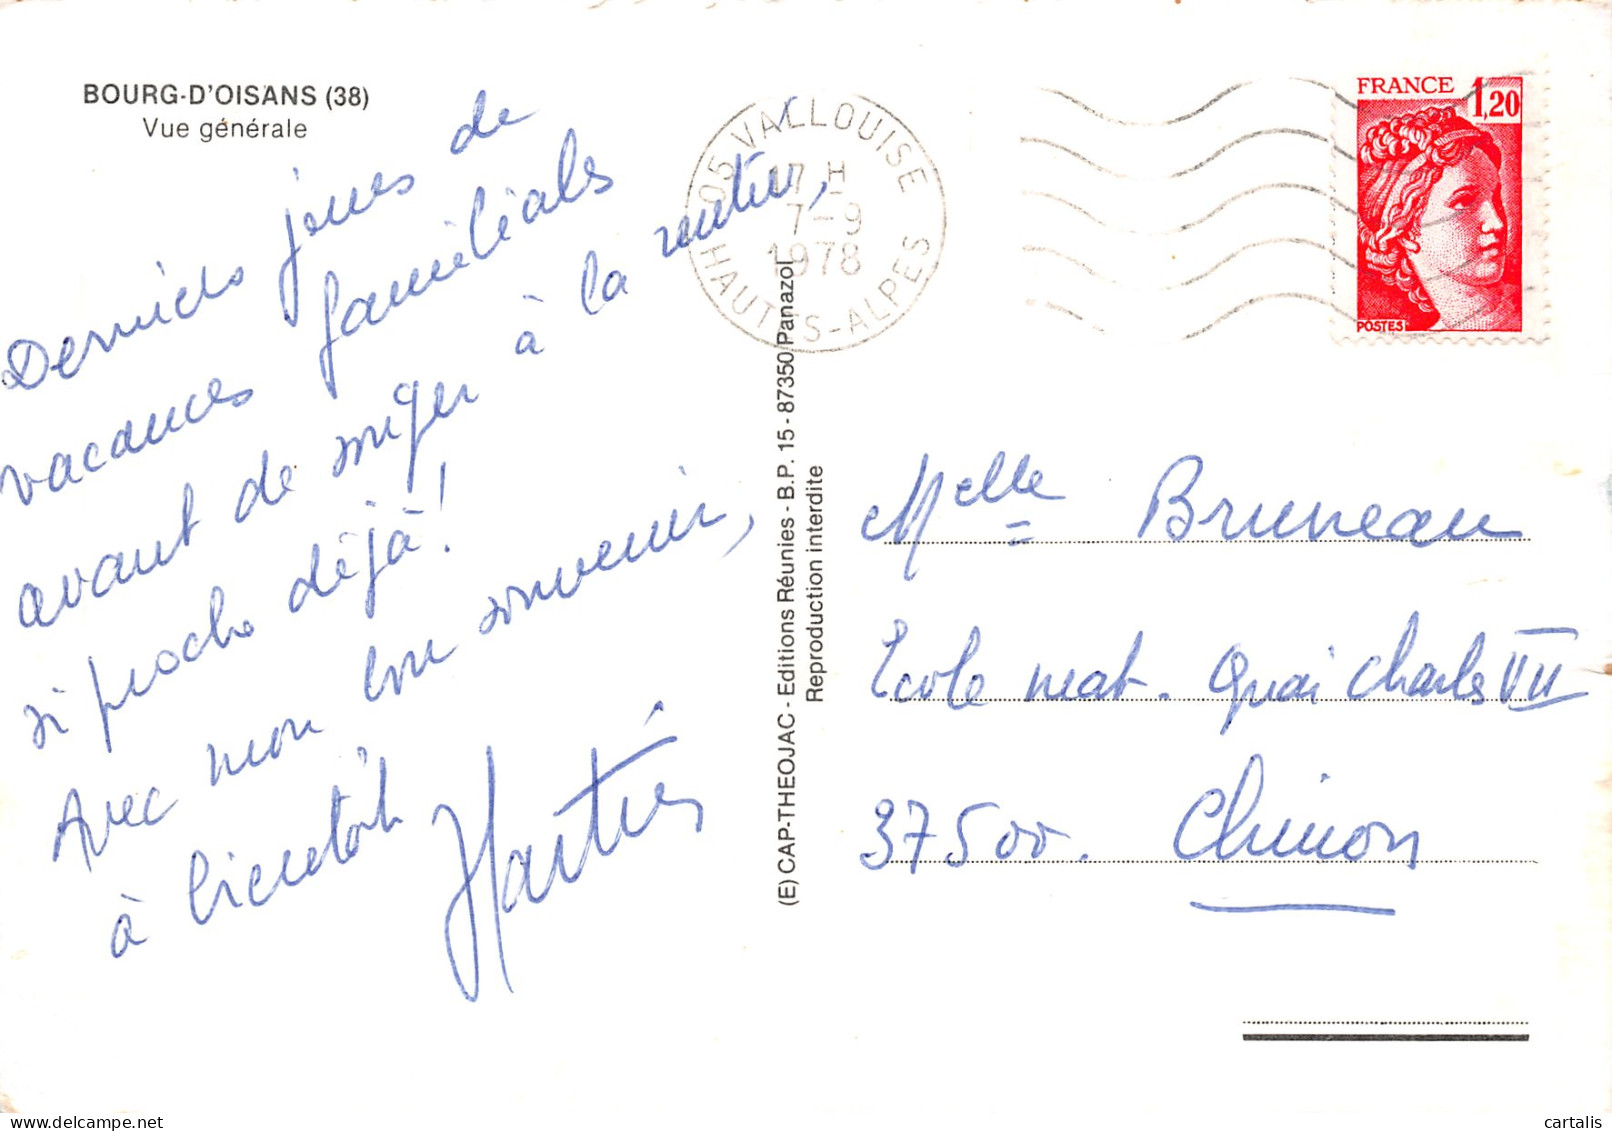 BOURG-D'OISANS (38)
Vue générale
Derniers jours de
vacances familiales
avant de songer à la rentrée,
si proche déjà !
Avec mon bon souvenir,
à bientôt
05 VALLOUISE
17 H
7-9
1978
HAUTES-ALPES
FRANCE 1,20
POSTES
(E) CAP-THEOJAC - Editions Réunies - B.P. 15 - 87350 Panazol
Reproduction interdite
Melle Bruneau
Ecole mat. Quai Charles VII
37500. Chinon
cartalis